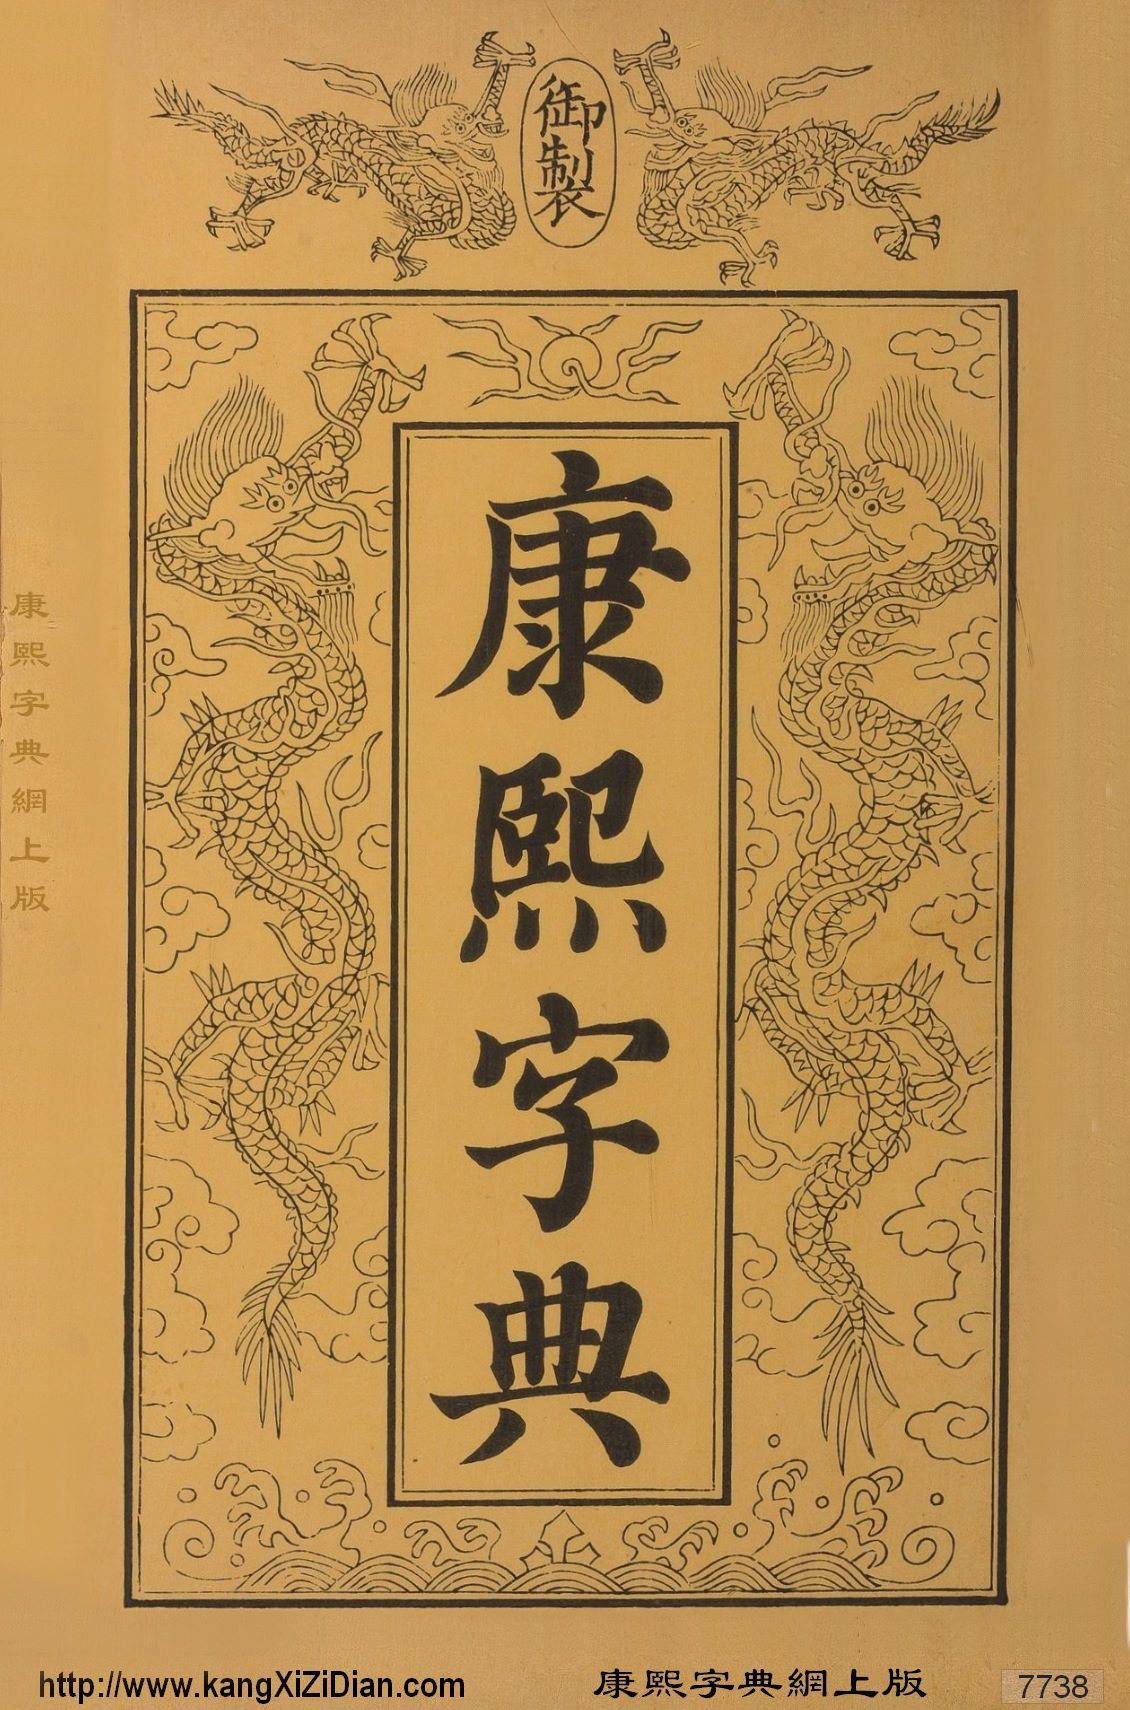 御製
康熙字典
康熙字典網上版
http://www.kangXiZiDian.com
康熙字典網上版
7738